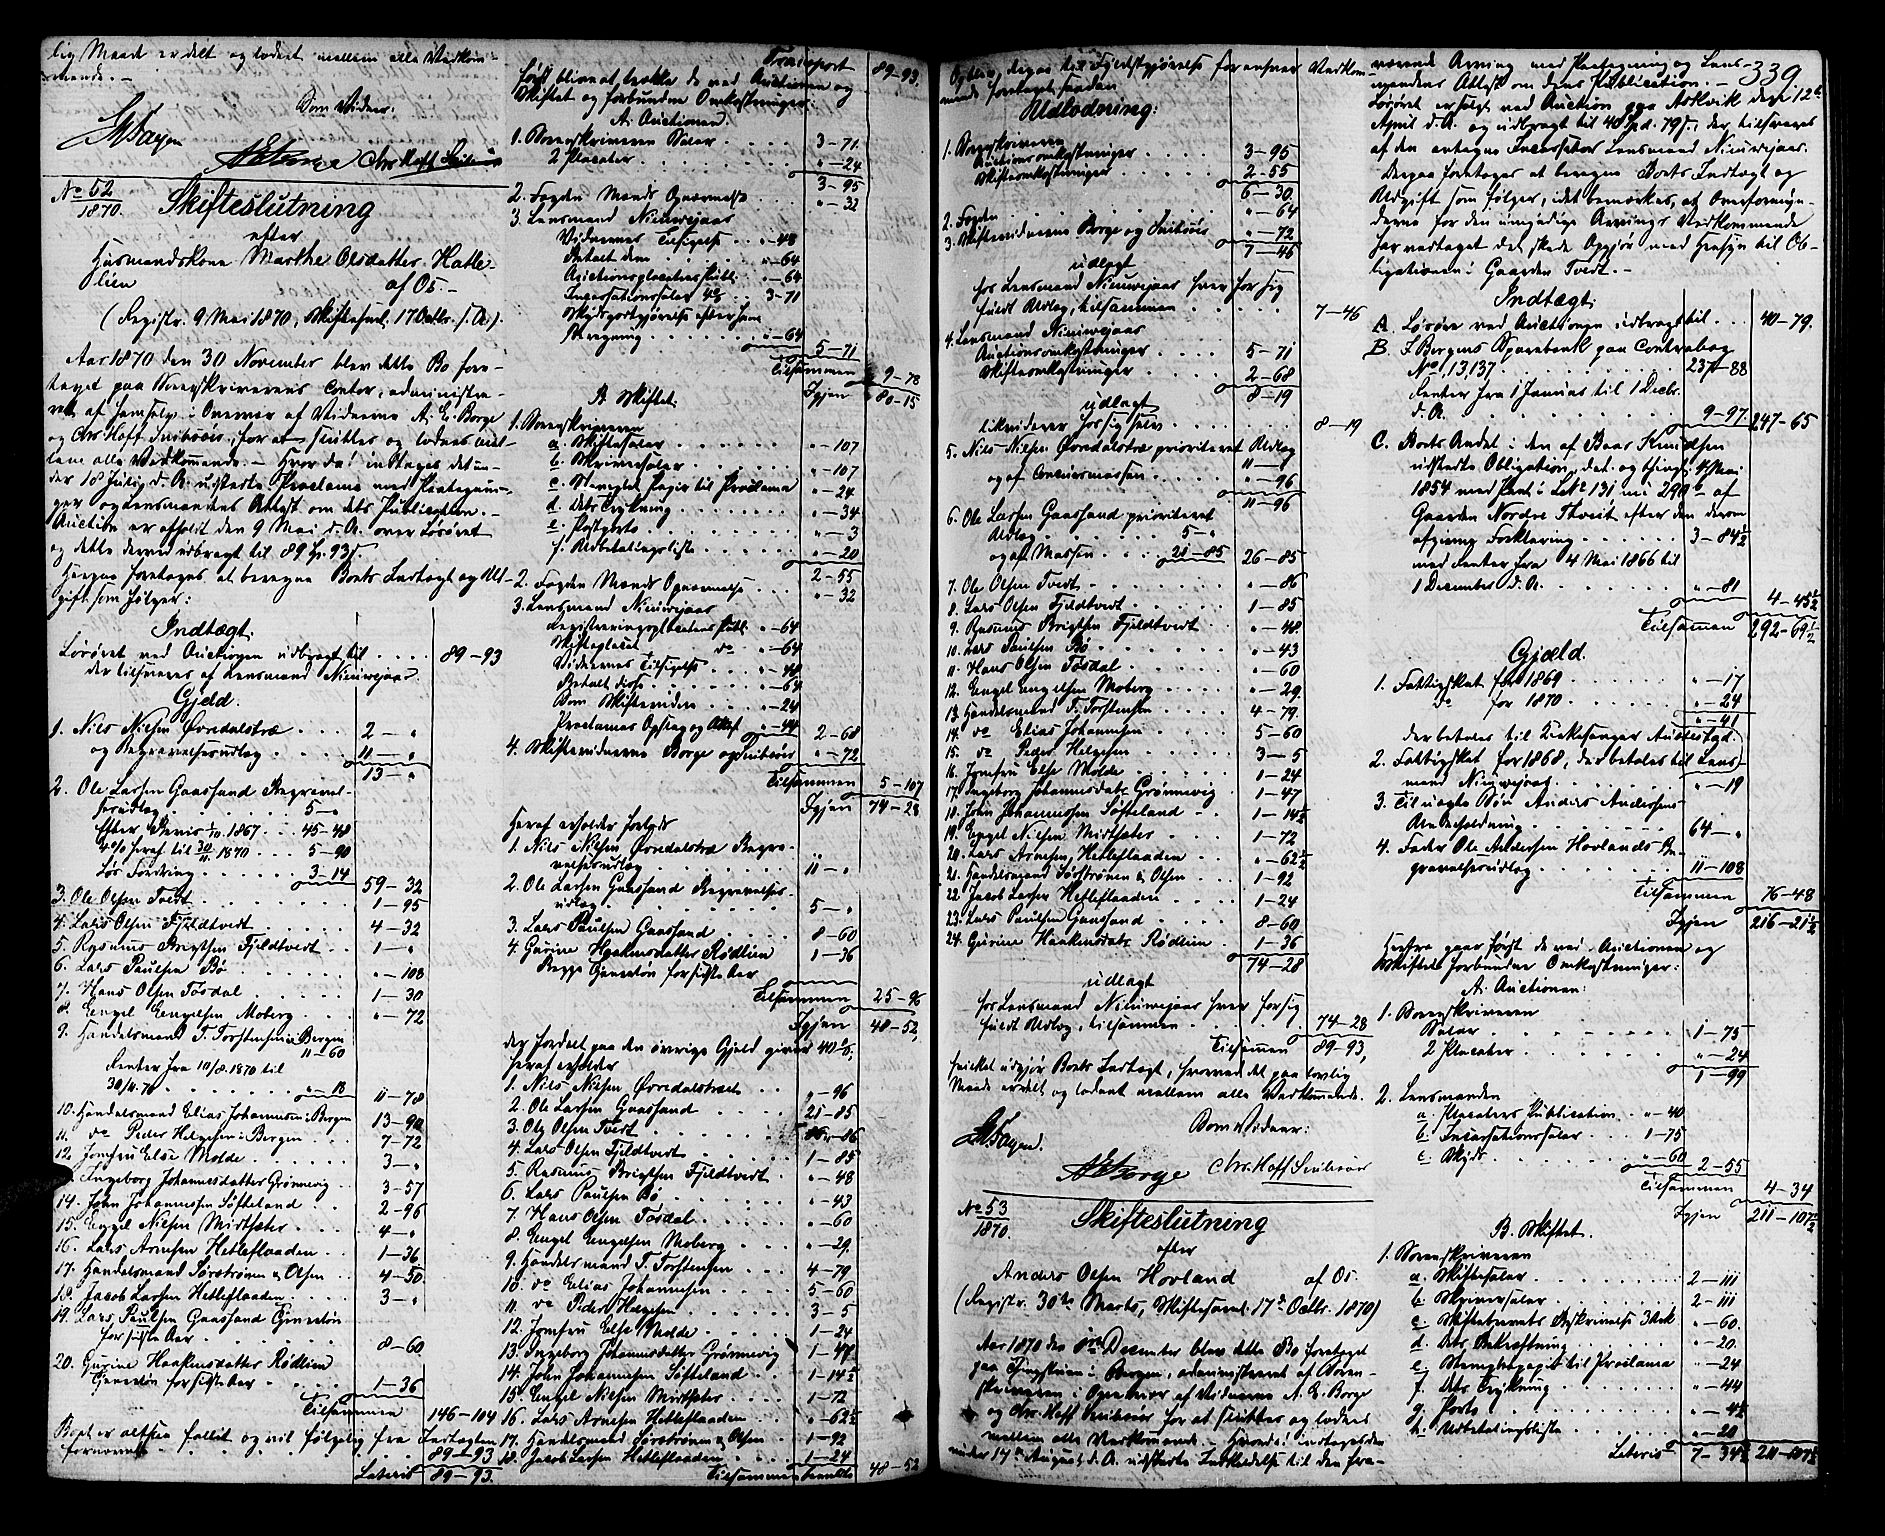 lig Maade er delt og loddet mellem alle Vedkom-
mende. –
Som Vidner:
A E Borge Chr. Hoff Snibsøer
No 52
1870.
Skifteslutning
efter
Husmandskone Marthe Olsdatter Hatle-
lien af Os –
(Registr. 9 Mai 1870, Skiftesaml. 17 Octbr. s. A.).
Aar 1870 den 30 November blev dette Bo fore-
taget paa Sorenskriverens Contor, administre-
ret af ham selv i Overvær af Vidnerne A. E. Borge
og Chr. Hoff Snibsøer, for at sluttes og loddes mel-
lem alle Vedkommende. – Hvorda: indtages det un-
der 18 Julij d. A. udstedte Proclama med Paategnin-
ger og Lensmandens Attest om dets Publication. –
Auction er afholdt den 9 Mai d. A. over Løsøret
og dette derved udbragt til 89 Sp. 93 s.
Herpaa foretoges at beregne Boets Indtægt og Ud-
gift som følger:
Indtægt:
Løsøret ved Auctionen udbragt til . . . . 89–93
der tilsvares af Lensmand Nieuwejaar
Gjeld.
1. Nils Nielsen Øvredalstræ . . 2 – "
og Begravelsesudlæg . . . 11 – "
13 – "
2. Ole Larsen Gaassand Begravel-
sesudlæg . . . . . 5 – "
Efter Bevis 1/10 1867 . . . 45–48
4% heraf til 30/11 1870 . . . 5–90
Løs Fordring . . . . . 3–14
59–32
3. Ole Olsen Tvedt . . . . 1–95
4. Lars Olsen Fjeldtvedt . . . 4–32
5. Rasmus Brigtsen Fjeldtvedt . . 1 – "
6. Lars Paulsen Bø . . . . "–108
7. Hans Olsen Tøsdal . . . . 1–30
8. Engel Engelsen Moberg . . . "–72
9. Handelsmand T. Torstensen i Bergen
11–60
Renter fra 10/8 1870 til
30/11 70 . . . . "–18
11–78
10. Handelsmand Elias Johannesen i Bergen 13–90
11. do Peder Helgesen i Bergen . . 7–72
12. Jomfru Else Molde . . . . 3 – "
13. Ingeborg Johannesdatter Grønnevig 3–57
14. John Johannessen Søfteland . . 2–96
15. Engel Nielsen Midtsæter . . . 4 – "
16. Lars Arnesen Hetleflaaden . . 1–36
17. Handelsmand Sørstrønen & Olsen . . 4–50
18. Jacob Larsen Hetleflaaden . . . 3 – "
19. Lars Paulsen Gaassand Tjenerløn
for sidste Aar . . . . 8–60
20. Gurine Haakensdatter Rødlien
Tjenerløn for sidste Aar . . . 1–36
Tilsammen 146–104
Boet er altsaa fallit og vil følgelig fra Indtægten
fornævnte . . . 89–93
Lateris 89–93.
Transport 89–93.
Først blive at trække de ved Auctionen og
Skiftet og forbundne Omkostninger:
A. Auctionen.
1. Sorenskriveren Salær . . . 3–71.
2 Placater . . . . "–24
3–95
2. Fogden Monds Opnævnelse . . "–32
3. Lensmand Nieuwejaar
Vidnernes Tilsigelse . . "–48
Betalt dem . . . . "–64
Auctionsplacatens Publ. . "–64
Incassationssalær 4% . . 3–71
Skydsgodtgjørelse efter hans
Regning . . . . "–64
5–71
Tilsammen 9–78
Igjen 80–15
B. Skiftet.
1. Sorenskriveren
a. Skiftesalær . . . . "–107
b. Skriversalær . . . . "–107
c. Stemplet Papir til Proclama "–24
d. Dets Trykning . . . . "–34
e. Postporto . . . . "–3
f. Udbetalingsliste . . . "–20
2–55
2. Fogden Monds Opnævnelse . . "–32
3. Lensmand Nieuwejaar
Registreringsplacatens Publ. "–64
Skifteplacat do "–64
Vidnernes Tilsigelse . . "–48
Betalt disse . . . . "–64
Som Skiftevidne . . . "–24
Proclamas Opslag og Attest "–44
2–68
4. Skiftevidnerne Borge og Snibsøer "–72
Tilsammen 5–107
Igjen 74–28
Heraf erholder forlods
1. Nils Nielsen Øvredalstræ Begra-
velsesudlæg . . . . 11 – "
2. Ole Larsen Gaassand Begravelses-
udlæg . . . . 5 – "
3. Lars Paulsen Gaassand . . . 8–60
4. Gurine Haakensdatter Rødlien 1–36
Begge Tjenerløn for sidste Aar
Tilsammen 25–96
Igjen 48–52,
der fordelt paa den øvrige Gjeld giver 40%.
heraf erholder
1. Nils Nielsen Øvredalstræet . . "–96
2. Ole Larsen Gaassand . . . 21–85
3. Ole Olsen Tvedt . . . . "–86
4. Lars Olsen Fjeldtvedt . . . 1–85
5. Rasmus Brigtsen Fjeldtvedt . . "–48
6. Lars Paulsen Bø . . . . "–43
7. Hans Olsen Tøsdal . . . . "–60
8. Engel Engelsen Moberg . . . "–29.
9. Handelsmand T. Torstensen . . 4–79
10. do Elias Johannesen . . 5–60
11. do Peder Helgesen . . . 3–5
12. Jomfru Else Molde . . . . 1–24
13. Ingeborg Johannesdatter Grønnevig 1–47
14. John Johannesen Søfteland . . 1–14½
15. Engel Nielsen Midtsæter . . . 1–72
16. Lars Arnesen Hetleflaaden . . . "–62½
17. Handelsmand Sørstrønen & Olsen . . 1–92
18. Jacob Larsen Hetleflaaden . . . 1–24
Tilsammen 48–52
339
mende foretaget saadan
Udlodning:
1. Sorenskriveren
Auctionsomkostninger . . . 3–95
Skifteomkostninger . . . 2–55
6–30
2. Fogden . . . . "–64
3. Skiftevidnerne Borge og Snibsøer "–72
7–46
udlagt
hos Lensmand Nieuwejaar hver for sig
fuldt Udlæg, tilsammen . . . . 7–46
4. Lensmand Nieuwejaar
Auctionsomkostninger . . . 5–71
Skifteomkostninger . . . 2–68
8–19
udlagt
likviderer hos sig selv . . . . 8–19
5. Nils Nielsen Øvredalstræ prioriteret Udlæg
11 – "
og af Concursmassen . . . "–96
11–96
6. Ole Larsen Gaassand prioriteret
Udlæg . . . 5 – "
og af Massen . . . 21–85 26–85
7. Ole Olsen Tvedt . . . . "–86
8. Lars Olsen Fjeldtvedt . . . 1–85
9. Rasmus Brigtsen Fjeldtvedt . . "–48
10. Lars Paulsen Bø . . . . "–43
11. Hans Olsen Tøsdal . . . . "–60
12. Engel Engelsen Moberg . . . "–29.
13. Handelsmand T. Torstensen . . 4–79
14. do Elias Johannesen . . 5–60
15. do Peder Helgesen . . 3–5
16. Jomfru Else Molde . . . . 1–24
17. Ingeborg Johannesdatr. Grønnevig . 1–47
18. John Johannessen Søfteland . . 1–14½
19. Engel Nielsen Midtsæter . . . 1–72
20. Lars Arnesen Hetleflaaden . . "–62½
21. Handelsmand Sørstrønen & Olsen . . 1–92
22. Jacob Larsen Hetleflaaden . . . 1–24
23. Lars Paulsen Gaassand . . . 8–60
24. Gurine Haakensdatr. Rødlien . . 1–36
74–28
udlagt
hos Lensmand Nieuwejaar hver for sig
fuldt Udlæg, tilsammen . . . . 74–28
Tilsammen 89–93,
hvilket udgjør Boets Indtægt, hvorved det paa lovlig
Maade er delt og loddet mellem alle Vedkommende.
Som Vidner:
A E Borge Chr. Hoff Snibsøer
No 53
1870.
Skifteslutning
efter
Anders Olsen Hovland af Os.
(Registr. 30te Marts, Skiftesaml. 17de Octbr. 1870)
Aar 1870 den December blev dette Bo foretaget
paa Thingstuen i Bergen, administreret af Soren-
skriveren i Overvær af Vidnerne A. E. Borge
og Chr. Hoff Snibsøer for at sluttes og loddes
mellem alle Vedkommende. – Hvorda: indtages den
under 14de August d. A. udstedte Indkaldelse til den fra-
værende Arving med Paategning og Lens-
mandens Attest om dens Publication. –
Løsøret er solgt ved Auction paa Askvik den 12te
April d. A. og udbragt til 40 Spd. 79 s., der tilsvares
af den antagne Incassator Lensmand Nieuwejaar.
Derpaa foretoges at beregne Boets Indtægt og
Udgift som følger, idet bemærkes, at Overformyn-
deren for den umyndige Arvings Vedkommende
har vedtaget det skede Opgjør med Hensyn til Ob-
ligationen i Gaarden Tvedt. –
Indtægt:
A. Løsøre ved Auctionen udbragt til . . . 40–79.
B. I Bergens Sparebank paa Contrabog
No. 13,137 . . . . 237–88
Renter fra 1 Januar til 1 Decbr.
d. A. . . . . 9–97
247–65
C. Boets Andel i den af Baar Knudsen
udstedte Obligation, dat. og thingl. 4 Mai
1854 med Pant i LNo 131 mno 290b af
Gaarden Nordre Thveit efter den derom
afgivne Forklaring . . . . 3–84½
med Renter fra 4 Mai 1866 til
1 December d. A. . . . . "–81
4–45½
Tilsammen 292–69½
Gjæld.
1. Fattigskat for 1869 . . . . "–17
do for 1870 . . . . "–24
"–41
der betales til Kirkesanger Austestad
2. Fattigskat for 1868, der betales til Lens-
mand Nieuwejaar . . . . "–19
3. Til uægte Søn Anders Andersens
Underholdning . . . . 64 – "
4. Fader Ole Andersen Hovlands Be-
gravelsesudlæg . . . . 11–108
Tilsammen 76–48
Igjen 216–21½
Herfra gaar først de ved Auctionen og
Skiftet forbundne Omkostninger:
A. Auctionen:
1. Sorenskriveren
Salær . . . . 1–75
2 Placater . . . . "–24
1–99
2. Lensmanden
a. Placaters Publication . . "–40
b. Incassationssalær . . 1–75
c. Skyds . . . . "–60
2–55
Tilsammen 4–34
Igjen 211–107½
B. Skiftet.
1. Sorenskriveren
a. Skiftesalær . . . . 2–111
b. Skriversalær . . . . 2–111
c. Skiftebrevets Beskrivelse 3 Ark "–60.
d. Dets Bekræftning . . . "–20.
e. Stemplet Papir til Proclama "–24
f. Dets Trykning . . . . "–44
g. Porto . . . . "–4½
h. Udbetalingsliste . . . "–20
Lateris 7–34½ 211–107½